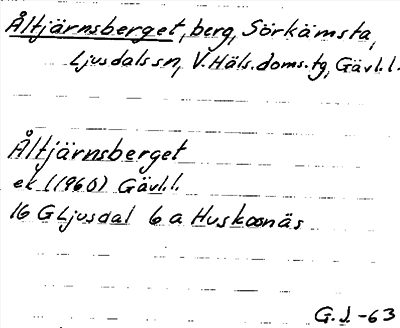 Åltjärnsberget, berg, Sörkämsta,
Ljusdals sn, V. Häls. doms. tg, Gävl. l.
Åltjärnsberget
ek (1960) Gävl. l.
16 G Ljusdal 6 a Huskosnäs
G. J. -63